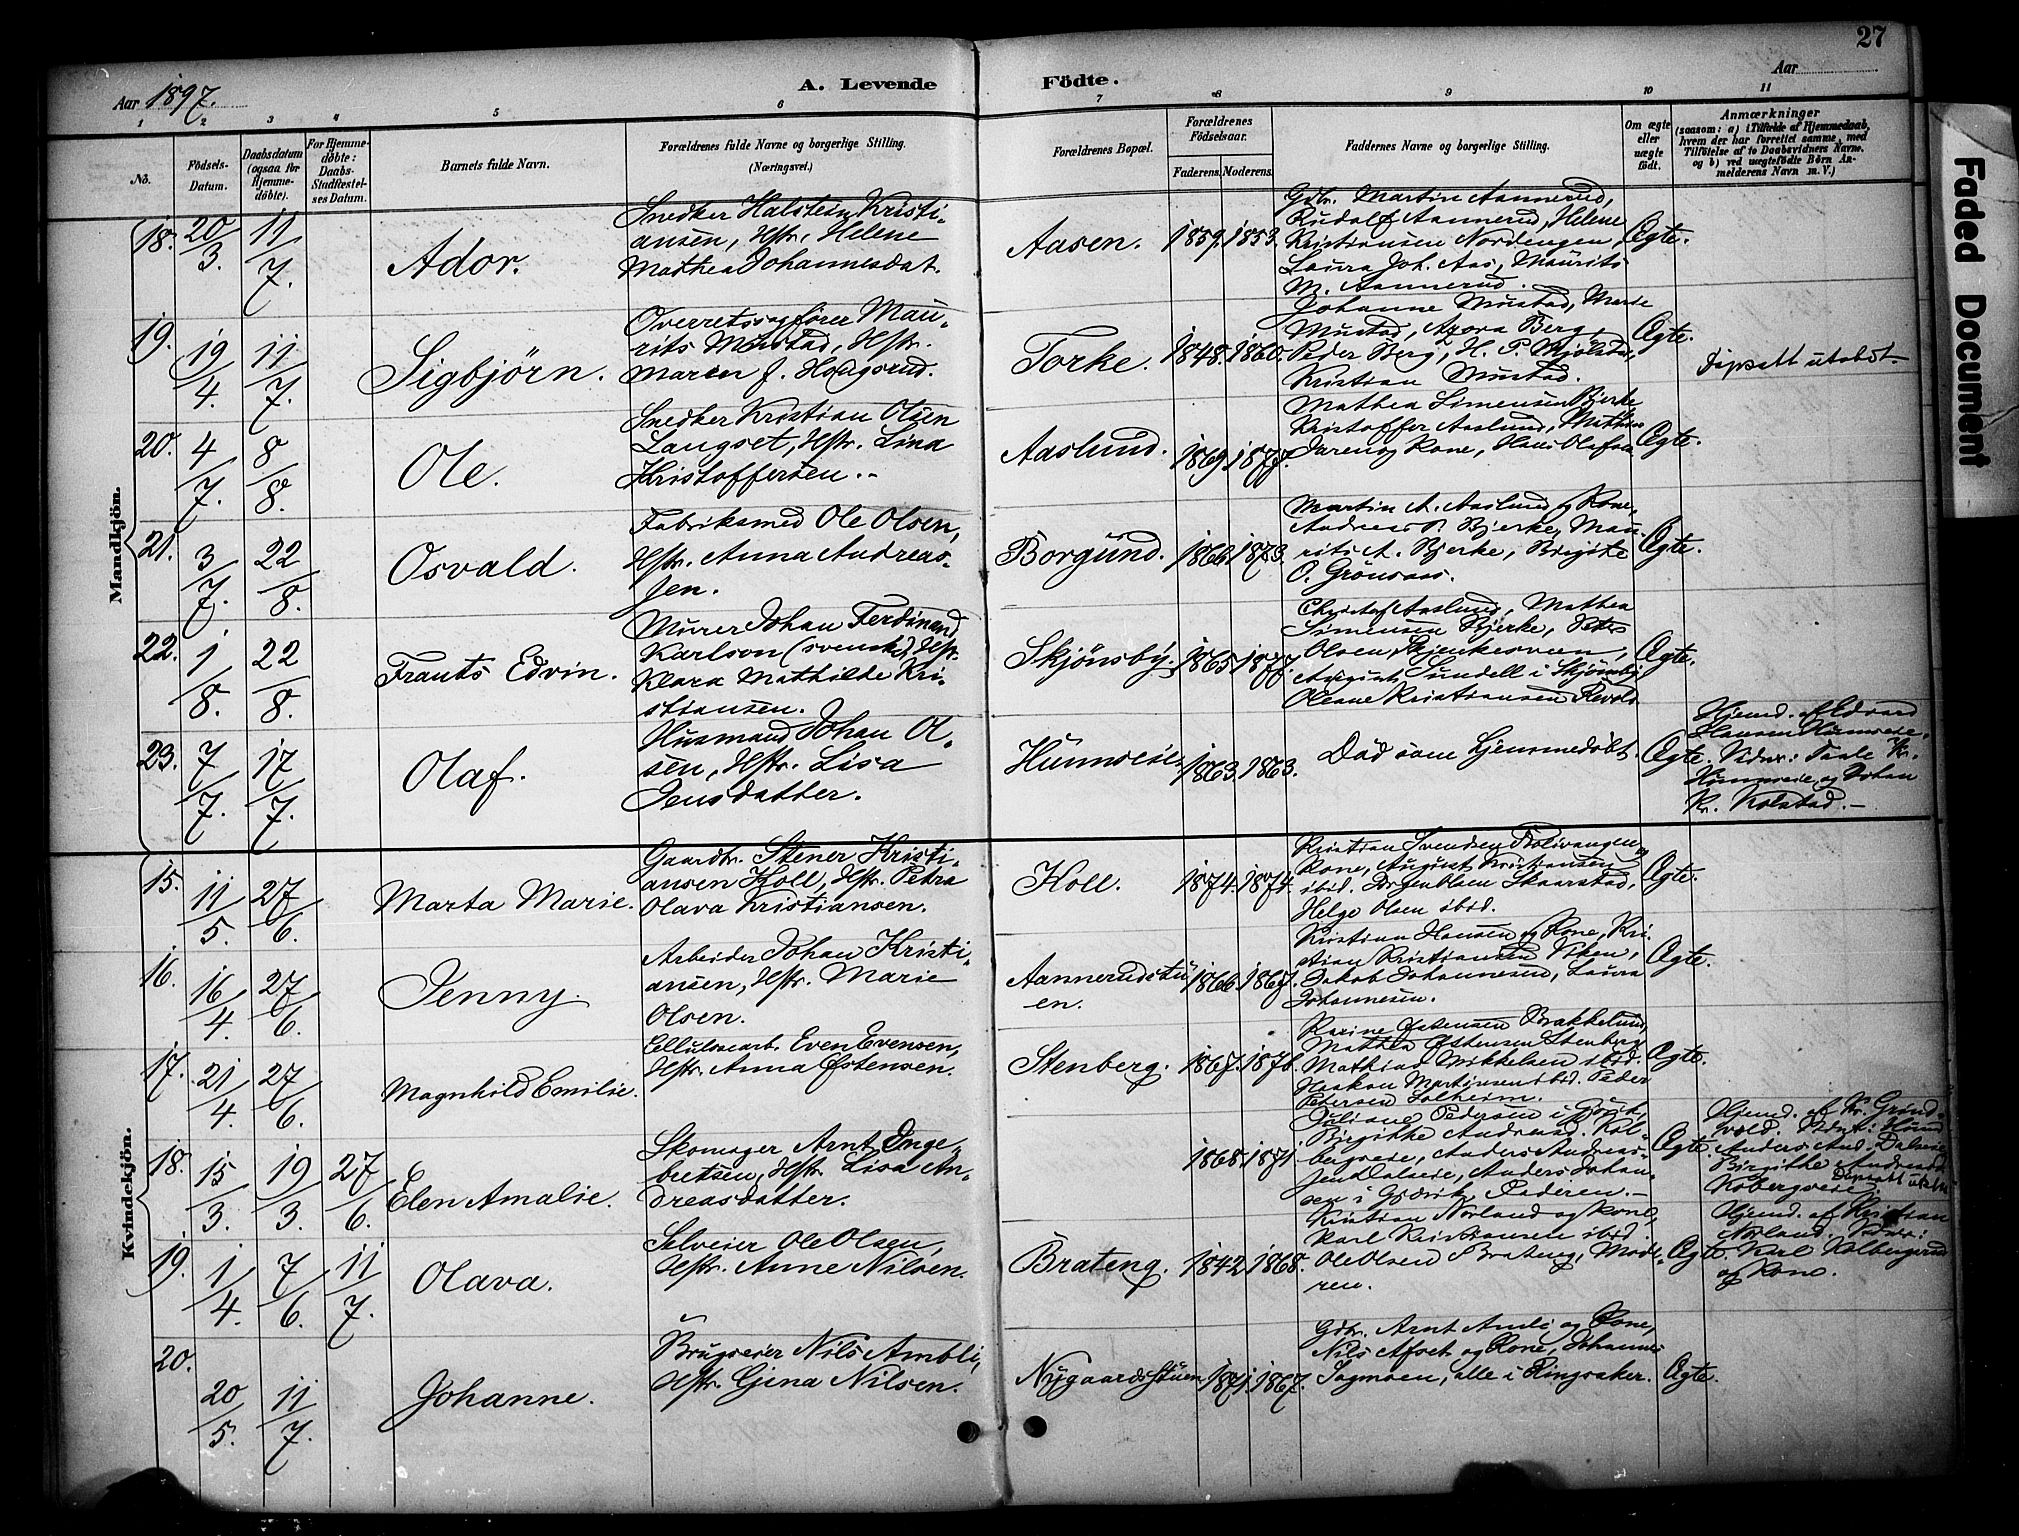 27
Aar 1897.
A. Levende Födte.
Aar
1 2 3 4 5 6 7 8 9 10 11
No.
Födsels-
Datum.
Daabsdatum
(ogsaa for
Hjemme-
døbte).
For Hjemme-
døbte:
Daabs-
Stadfæstel-
ses Datum.
Barnets fulde Navn.
Forældrenes fulde Navne og borgerlige Stilling.
(Næringsvei.)
Forældrenes Bopæl.
Forældrenes
Födselsaar.
Faderens. Moderens.
Faddernes Navne og borgerlige Stilling.
Om ægte
eller
uægte
født.
Anmærkninger
(saasom: a) i Tilfælde af Hjemmedaab,
hvem der har forrettet samme, med
Tilföielse af to Daabsvidners Navne,
og b) ved uægtefödte Börn An-
melderens Navn m. V.)
Mandkjön.
18. 20/3 11/7 Ador.
Snedker Halstein Kristi-
ansen, Hstr. Helene
Mathea Johannesdat.
Aasen. 1859. 1853.
Gdbr. Martin Aannerud,
Rudolf Aannerud, Helene
Kristiansen Nordengen,
Laura Joh. Aas, Maurits
M. Aannerud.
Ægte.
19. 19/4 11/7 Sigbjörn.
Overretssagfører Mau-
rits Mustad, Hstr.
Maren f. Haugsrud.
Torke. 1848. 1860.
Johanne Mustad, Marie
Mustad, Berg,
Peder Berg, H. P.
Kristian Mustad.
Ægte.
Dåpsatt utstedt
20. 4/7 8/8 Ole.
Snedker Kristian Olsen
Langset, Hstr. Lina
Kristoffersen.
Aaslund. 1869. 1877.
Mathea Simensen Bjerke
Kristoffer Aaslund,
og Kone, Olsen
Ægte.
21. 3/7 22/8 Osvald.
Fabriksmed Ole Olsen,
Hstr. Anna Andreas-
sen.
Borgund. 1866. 1873.
Martin A. Aaslund og Kone,
Andreas P. Bjerke, Mau-
rits A. Bjerke, Birgitte
O. Grönsaas.
Ægte.
22. 1/8 22/8 Frants Edvin.
Murer Johan Ferdinand
Karlson (svensk), Hstr.
Klara Mathilde Kri-
stiansen.
Skjönsby. 1865. 1877.
Aaslund, Mathea
Simensen Bjerke,
Olsen,
August Sundell i Skjönsby,
Oleane Kristiansen
Ægte.
23. 7/7 17/7 Olaf.
Husmand Johan Ol-
sen, Hstr. Lisa
Jensdatter.
Hunnseie. 1863. 1863.
Död som hjemmedöbt.
Ægte.
Hjemd. af Edvard
Hansen Hunnseie.
Vidner:
Hunnseie og Johan
Kr. Kolstad.
Kvindekjön.
15. 11/5 27/6 Marta Marie.
Gaardbr. Stener Kristi-
ansen Koll, Hstr. Petra
Olava Kristiansen.
Koll. 1874. 1874.
Kristian Svendsen
Kone, August Kristiansen
ibid. Jørgen Olsen Skaarstad,
Helge Olsen ibid.
Ægte.
16. 16/4 27/6 Jenny.
Arbeider Johan Kristi-
ansen, Hstr. Marie
Olsen.
Aannerudstu-
en. 1866. 1867.
Kristian Hansen og Kone, Kri-
stian Kristiansen Viken,
Jakob Johannesen, Laura
Johannesen.
Ægte.
17. 21/4 27/6 Magnhild Emilie.
Cellulosearb. Even Evensen,
Hstr. Anna Østensen.
Stenberg. 1867. 1876.
Karine Østensen Brakkelund,
Mathea Østensen Stenberg
Mathias Mikkelsen ibid.
Haakon Martinsen ibid. Peder
Petersen Solheim.
Ægte.
18. 15/3 19/3 27/6 Elen Amalie.
Skomager Arnt Inge-
bretsen, Hstr. Lisa An-
dreasdatter.
1868. 1871.
Juliane Pedersen i Gjövik,
Birgitte Andreasd. Kol-
bergseie, Anders Andreas-
sen Dalseie, Anders Johan-
sen i Gjövik, Faderen.
Ægte.
Hjemd. af Kr. Grönd-
vold.
Anders And. Dalseie
Birgithe Andreasd.
Kolbergseie. Dåpsatt utst
19. 1/4 7/6 11/7 Olava.
Selveier Ole Olsen,
Hstr. Anne Nilsen.
Brateng. 1842. 1868.
Kristian Norland og Kone,
Karl Kristiansen ibid.
Ole Olsen Brateng, Mode-
ren.
Ægte.
Hjemd. af Kristian
Norland. Vidner:
Karl Kolbergsrud
og Kone.
20. 20/5 11/7 Johanne.
Brugseier Nils Ambli,
Hstr. Gjena Nilsen.
Nygaardsstuen. 1871. 1867.
Gdbr. Arnt Amli og Kone,
Nils Afset og Kone, Johannes
Sagmoen, alle i Ringsaker.
Ægte.
Faded Document